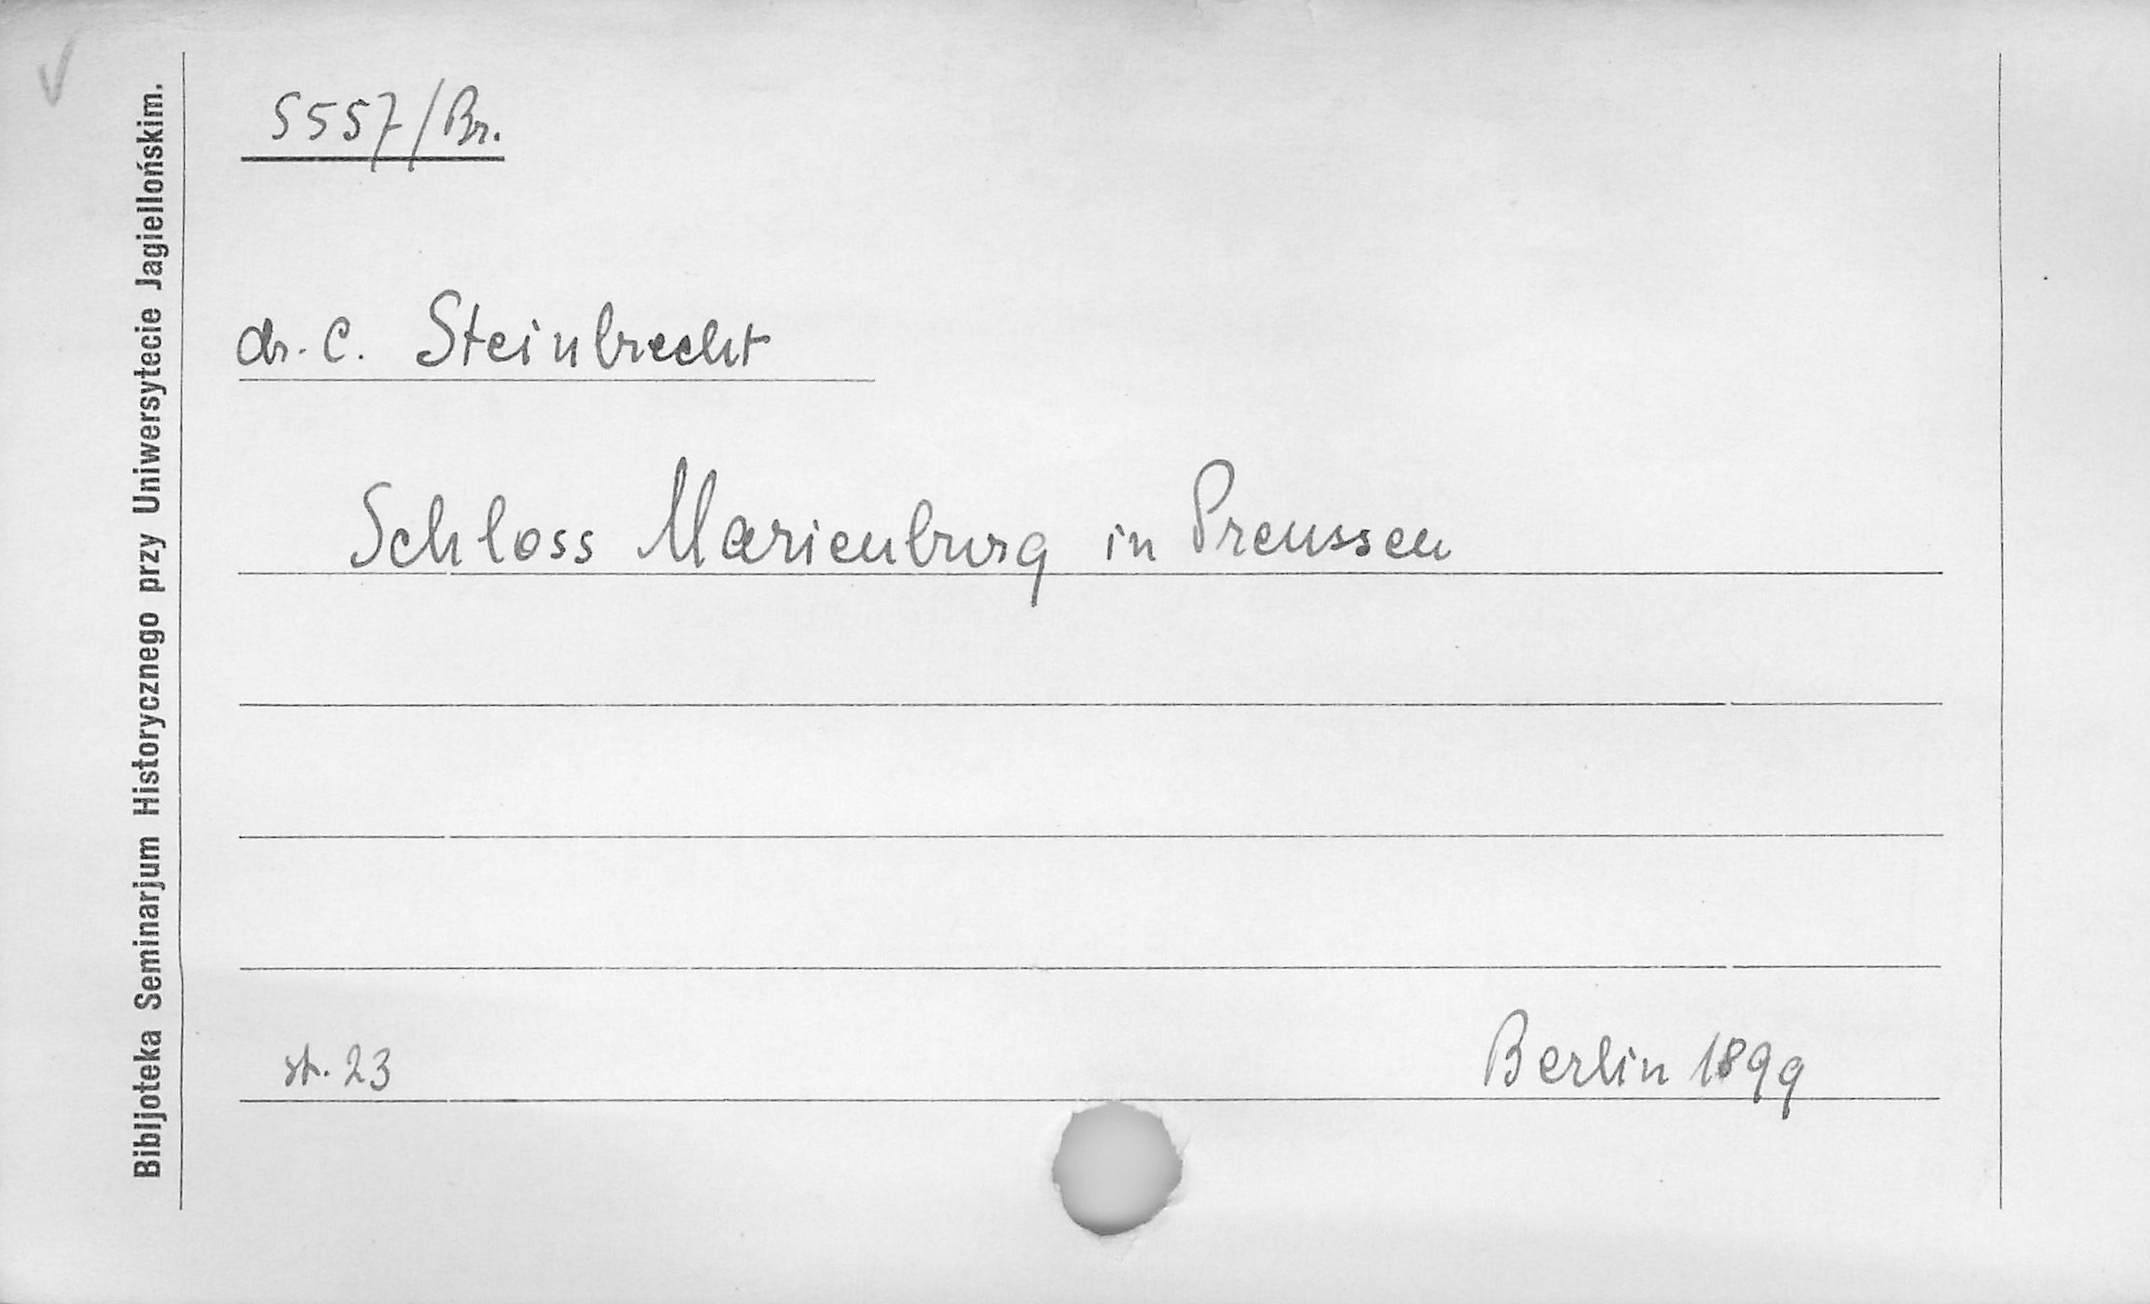 5557/Br.
dr. C. Steinbrecht
Schloss Marienburg in Preussen
str. 23
Berlin 1899
Bibljoteka Seminarjum Historycznego przy Uniwersytecie Jagiellońskim.